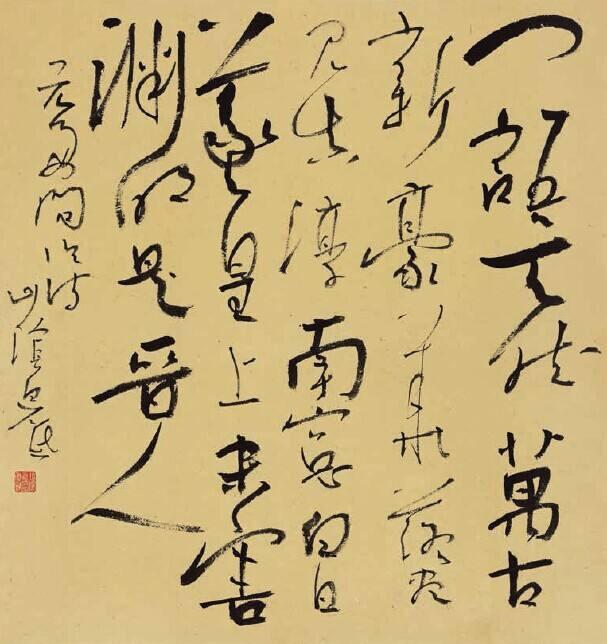 一語天然萬古
新豪華落盡
見真淳南窗白日
羲皇上未害
淵明是晉人
元好問論詩
山陰